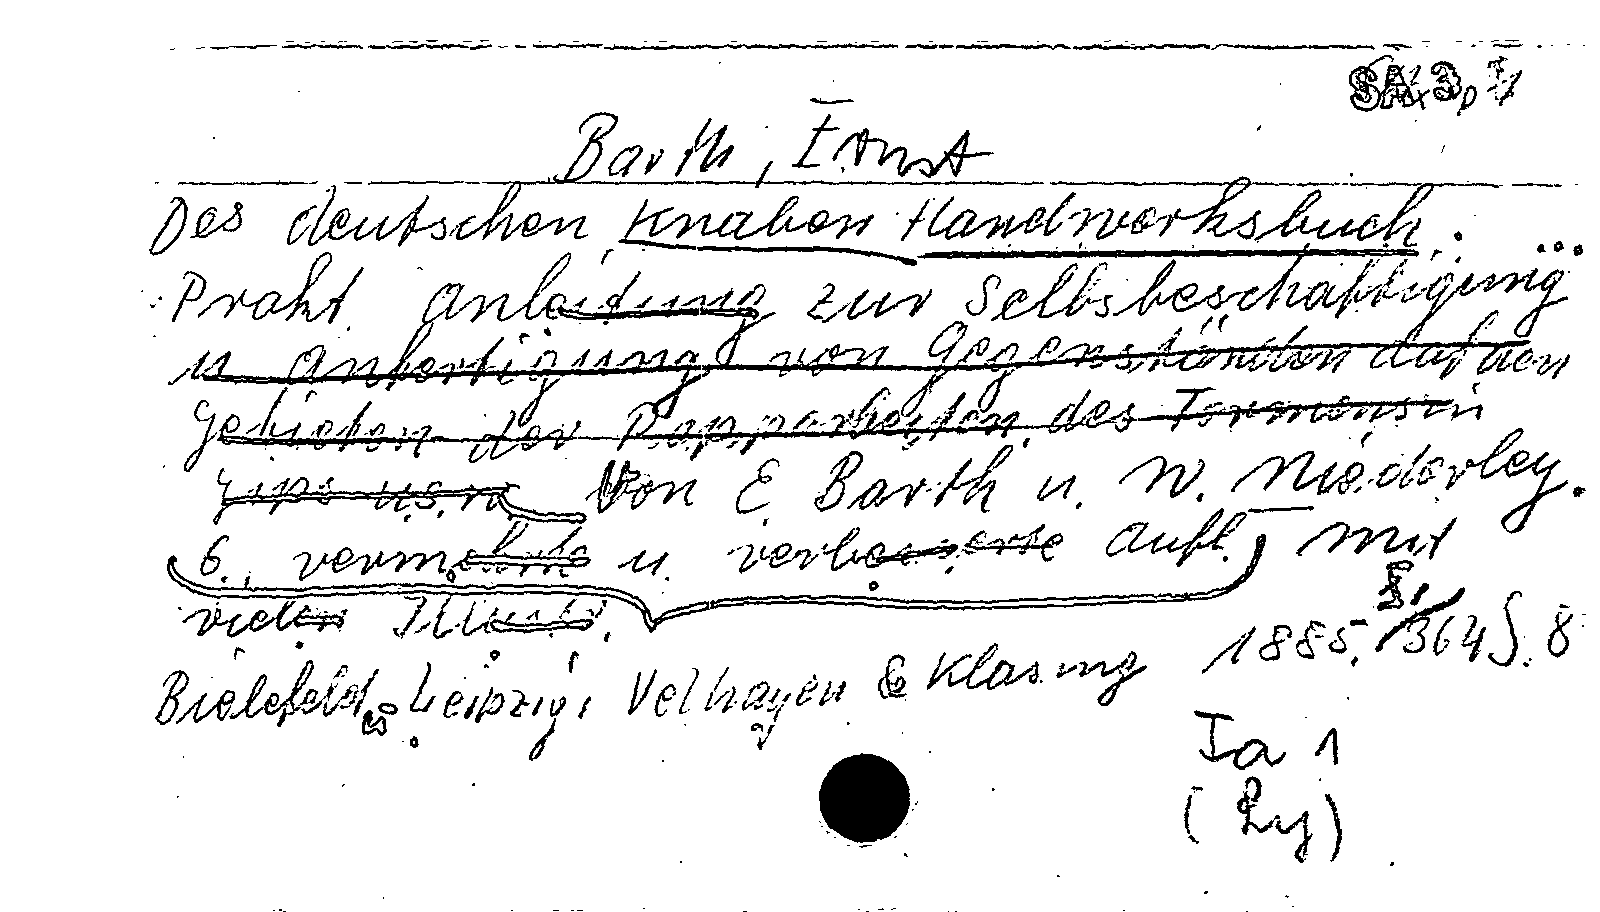 Barth, Ernst
Des deutschen Knaben Handwerksbuch. ...
Prakt. Anleitung zur Selbstbeschäftigung
u. Anfertigung von Gegenständen auf den
Gebieten der Papparbeiten, des Formens in
Gips u.s.w. Von E. Barth u. W. Niederley.
6., vermehrte u. verbesserte Aufl. Mit
vielen Illustr.
Bielefeld & Leipzig: Velhagen & Klasing 1885. 364 S. 8
Ia 1